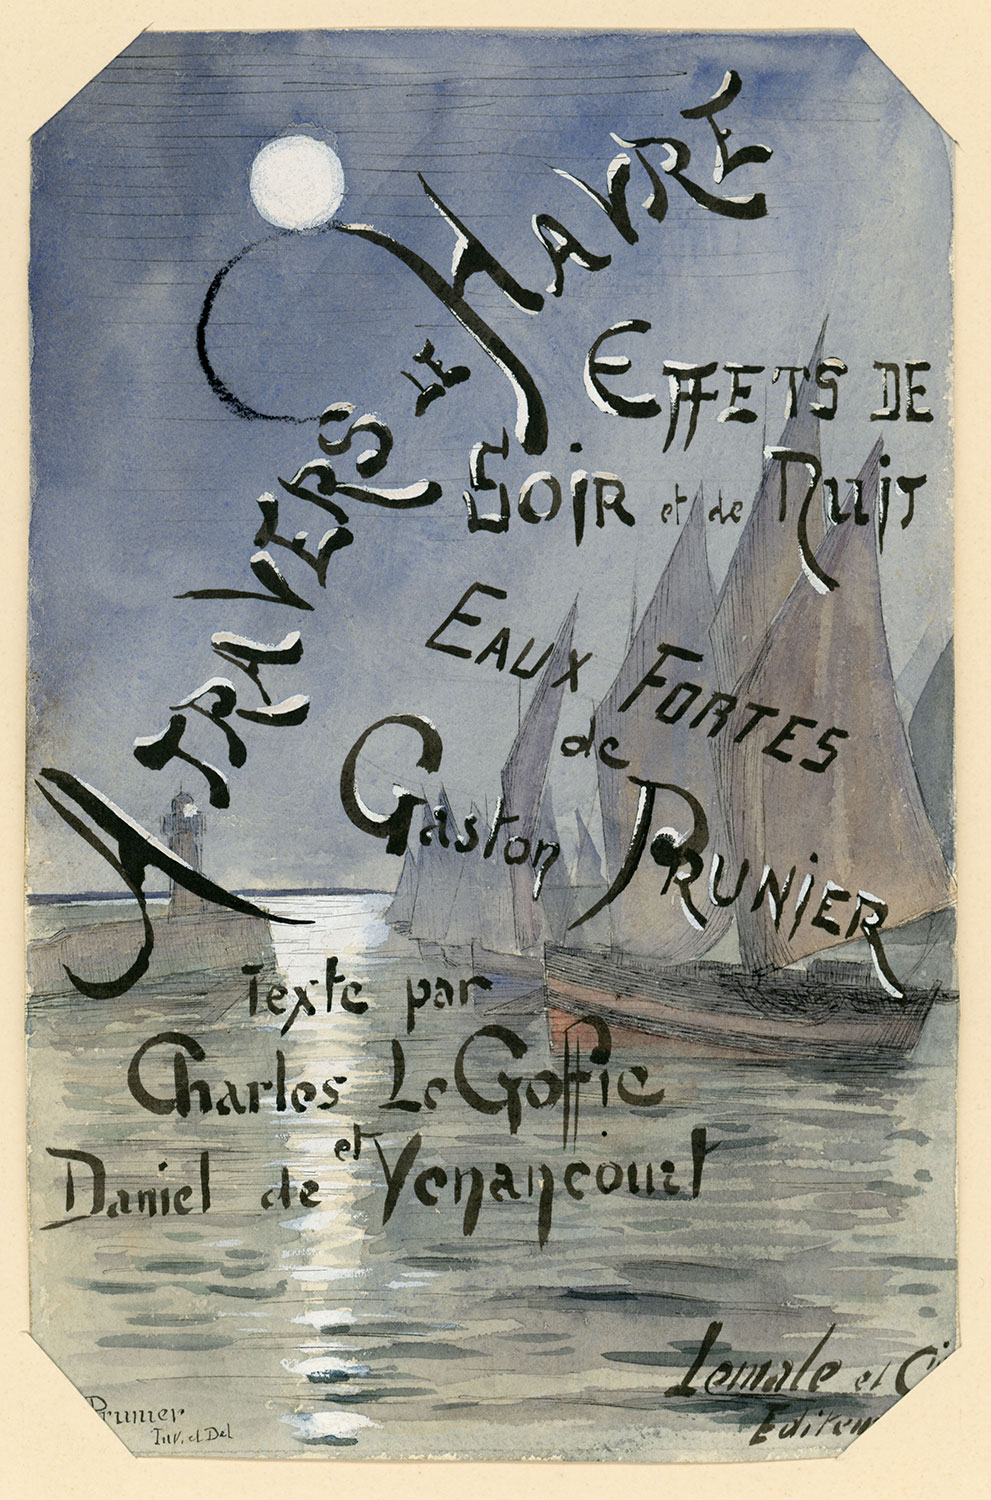 A TRAVERS LE HAVRE
EFFETS DE
SOIR et de NUIT
EAUX FORTES
de
Gaston PRUNIER
Texte par
Charles Le Goffic
et
Daniel de Venancourt
Lemale et C
Editeu
Prunier
Inv. et Del